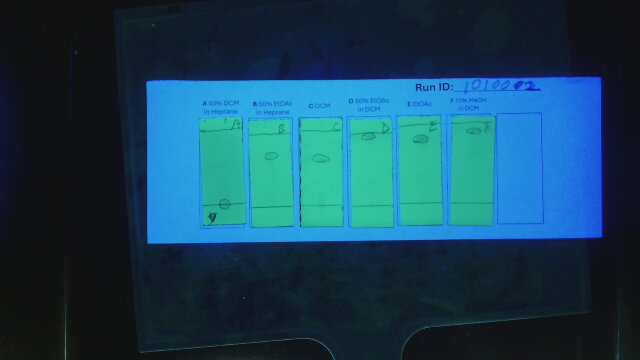 Run ID: 1010002
A 50% DCM
in Heptane
B 50% EtOAc
in Heptane
C DCM
D 50% EtOAc
in DCM
E EtOAc
F 10% MeOH
in DCM
A
B
C
D
E